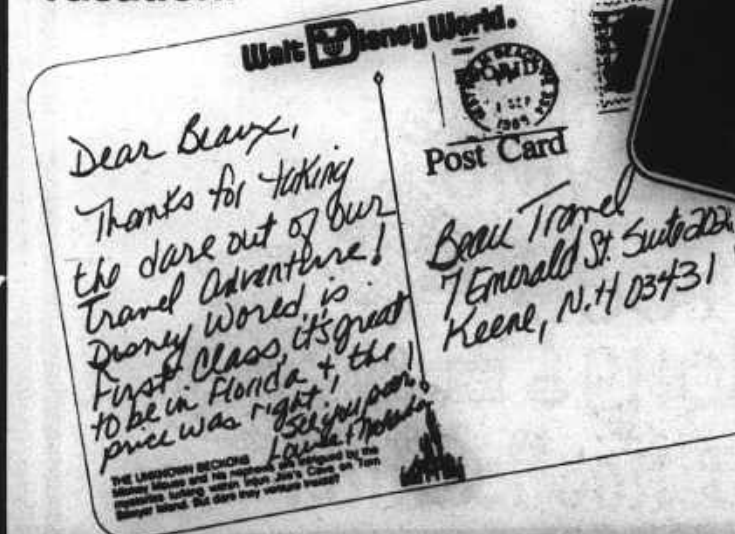 Walt Disney World.
1 SEP
1989
Post Card
Dear Beaux,
Thanks for taking
the dare out of our
Travel Adventure!
Disney World is
First Class, it's great
to be in Florida & the
price was right!
See you soon,
Beau Travel
7 Emerald St. Suite 202
Keene, N.H 03431
THE UNKNOWN BECKONS
Mickey Mouse and his nephews are intrigued by the
mysteries lurking within Injun Joe's Cave on Tom
Sawyer Island. But dare they venture inside?